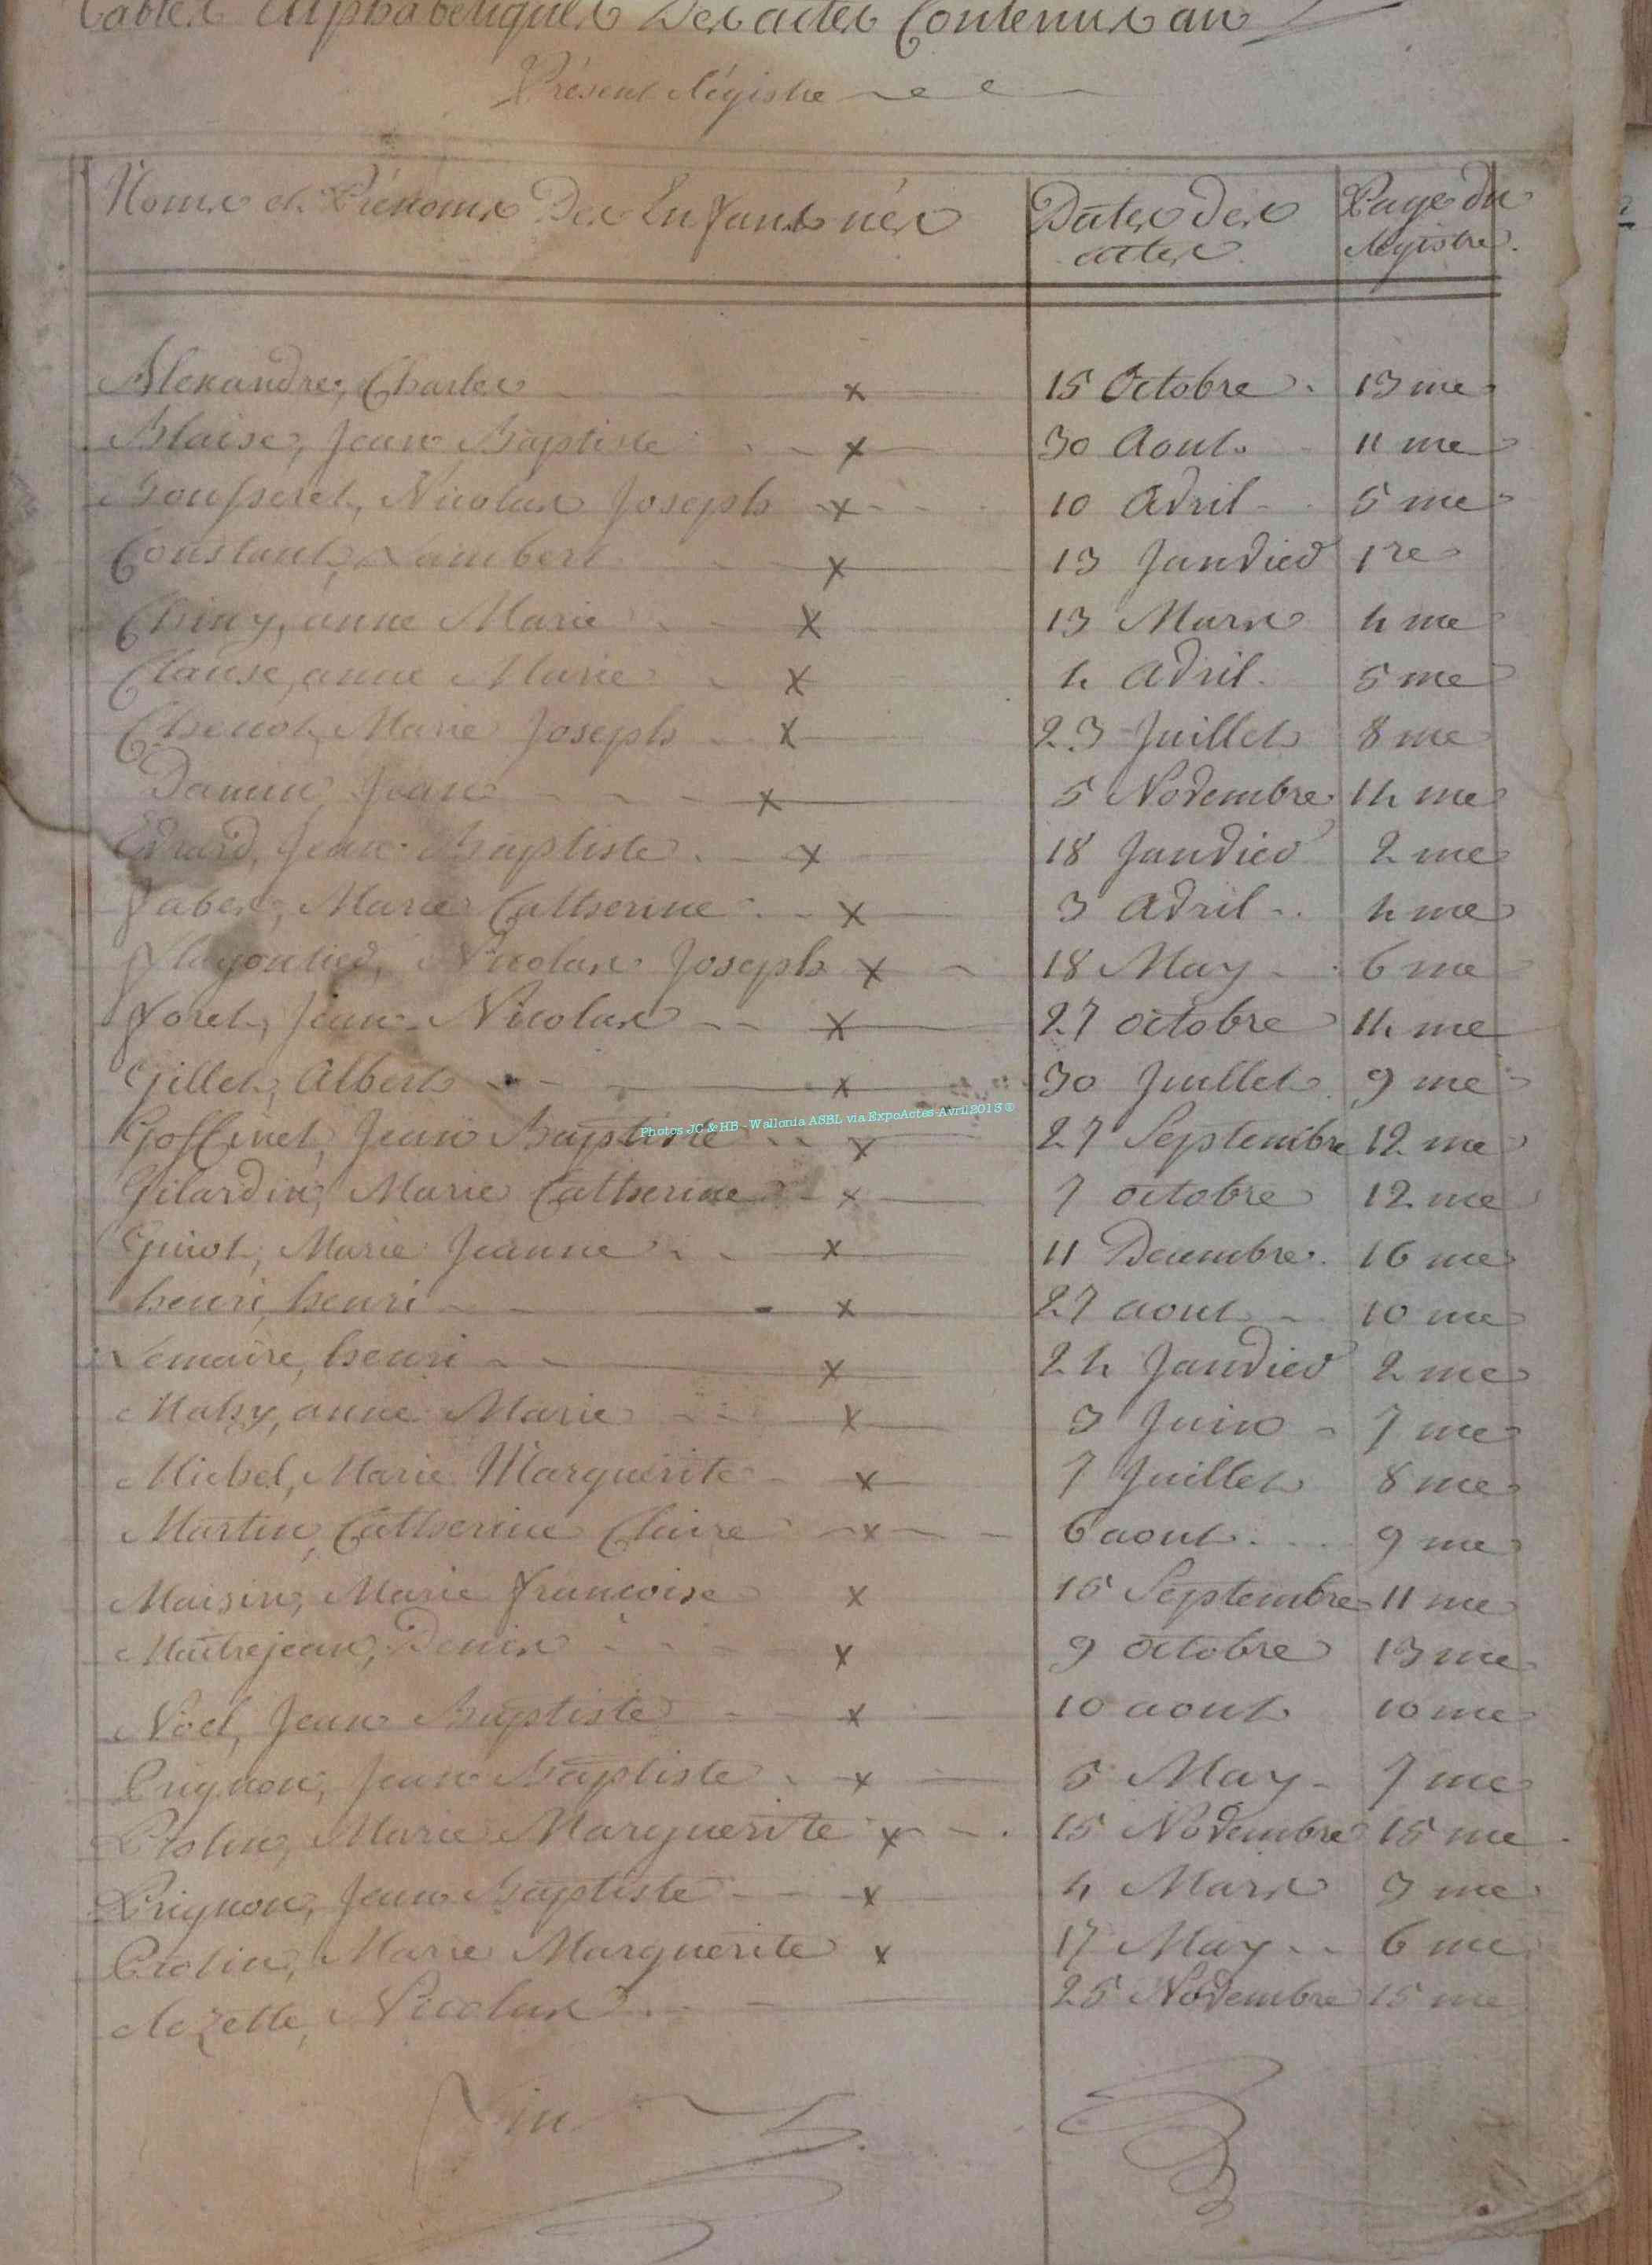 Tables Alphabétiques Des actes Contenus au
Présent Régistre
Noms et Prénoms Des Enfants nés Dates des actes Page du Régistre.
Alexandre, Charles x 15 Octobre 13 me
Blaise, Jean Baptiste x 30 Aout 11 me
Nicolas Joseph x 10 Avril 5 me
Constant, Lambert x 13 Janvier 1re
Chiny, anne Marie x 13 Mars 4 me
Clause, anne Marie x 4 avril 5 me
Chenot, Marie Joseph x 23 Juillet 8 me
Damin Jean x 5 Novembre 14 me
Evrard, Jean Baptiste x 18 Janvier 2 me
Faber, Marie Catherine x 3 Avril 4 me
Nicolas Joseph x 18 May 6 me
Foret, Jean Nicolas x 27 octobre 14 me
Gillet, Albert x 30 Juillet 9 me
Photos JC & HB - Wallonia ASBL via ExpoActes-Avril2013 ©
Goffinet, Jean Baptiste x 27 Septembre 12 me
Gilardin, Marie Catherine x 7 octobre 12 me
Guiot, Marie Jeanne x 11 Decembre 16 me
henri, henri x 27 aout 10 me
Lemaire, henri x 24 Janvier 2 me
Mahy, anne Marie x 3 Juin 7 me
Michel, Marie Marguerite x 7 Juillet 8 me
Martin, Catherine Claire x 6 aout 9 me
Maisin, Marie francoise x 15 Septembre 11 me
Maitrejean, Denis x 9 octobre 13 me
Noël, Jean Baptiste x 10 aout 10 me
Jean Baptiste x 5 May 7 me
Marie Marguerite x 15 Novembre 15 me
Prignon, Jean Baptiste x 4 Mars 3 me
Marie Marguerite x 17 May 6 me
Rezette, Nicolas 25 Novembre 15 me
Fin